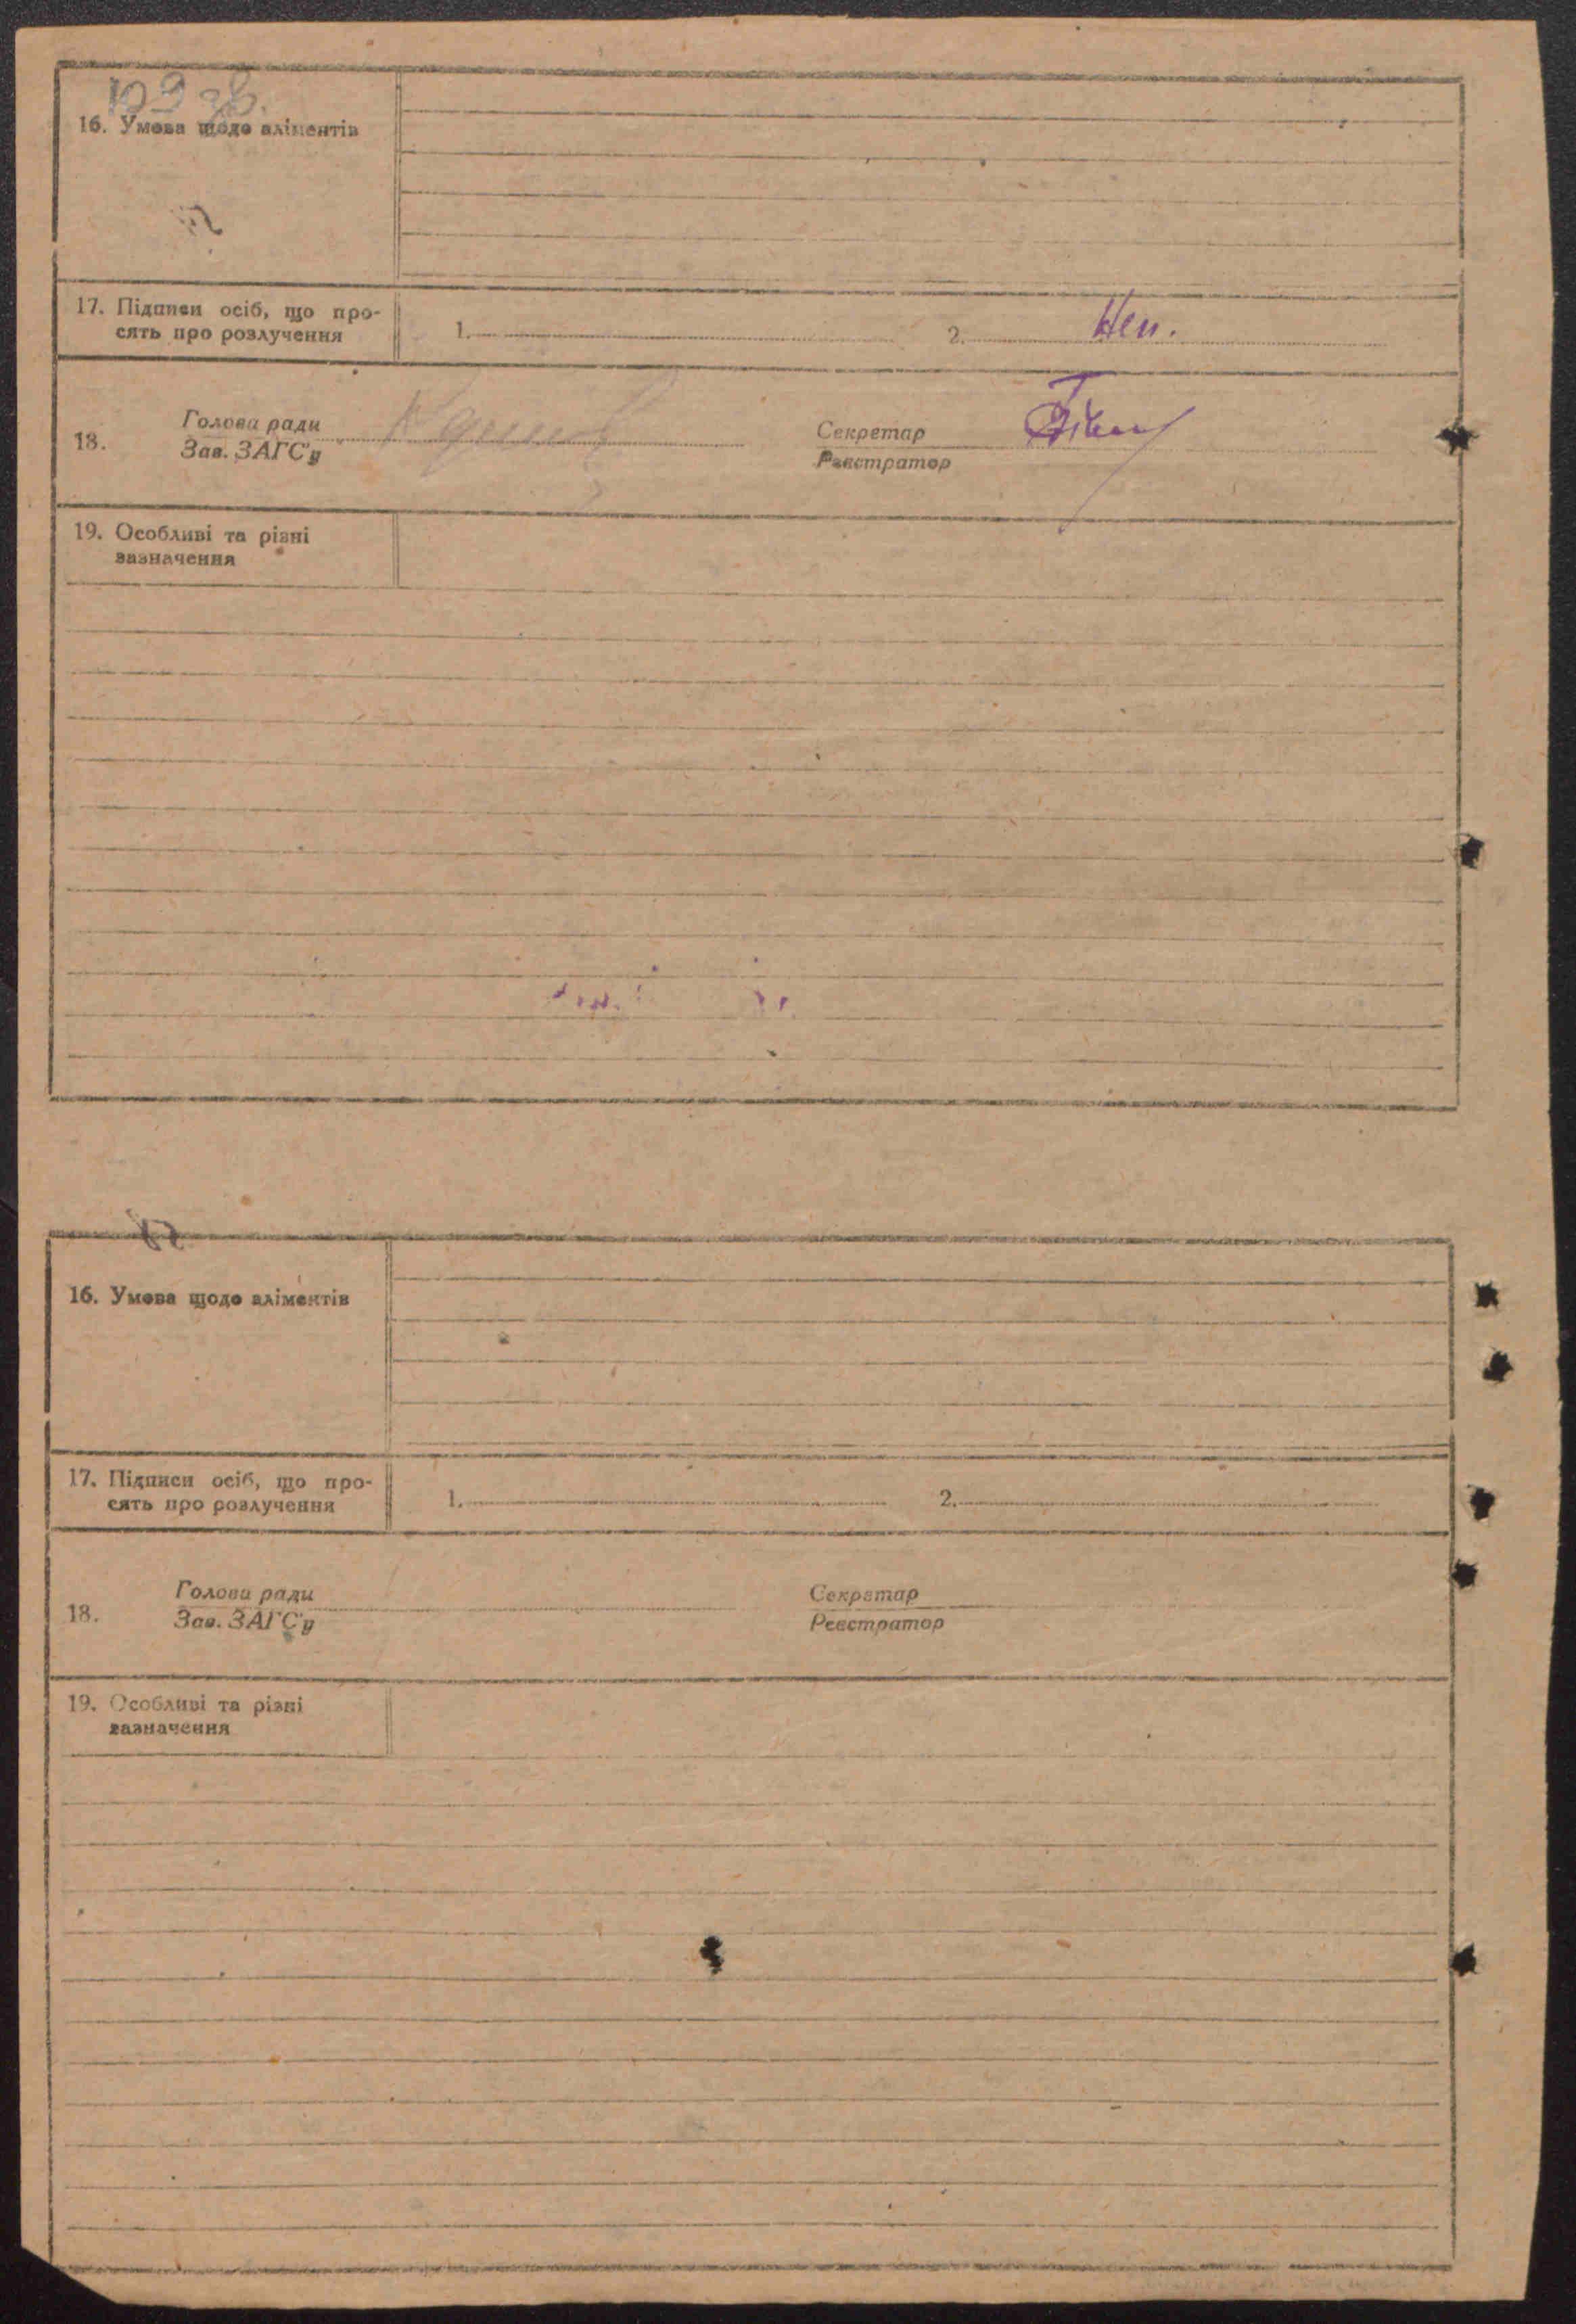 16. Умова щодо аліментів
17. Підписи осіб, що про-
сять про розлучення
1.
2.
Неп.
18.
Голова ради
Зав. ЗАГС'у
Секретар
Реєстратор
19. Особливі та різні
зазначення
16. Умова щодо аліментів
17. Підписи осіб, що про-
сять про розлучення
1.
2.
18.
Голова ради
Зав. ЗАГС'у
Секретар
Реєстратор
19. Особливі та різні
зазначення